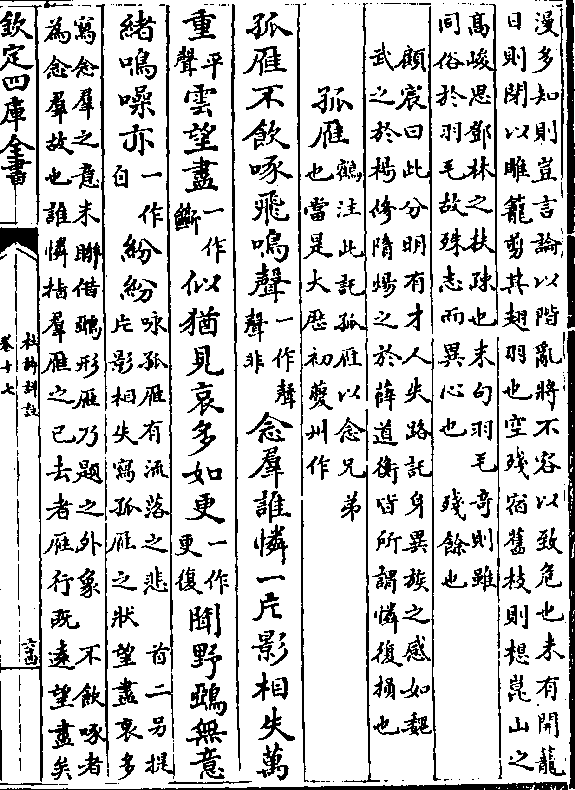 漫多知則豈言論以階亂將不容以致危也未有開籠
日則閉以雕籠剪其翅羽也空殘宿舊枝則想崑山之
高峻思鄧林之扶疎也末句羽毛奇則雖
同俗於羽毛故殊志而異心也　殘餘也
顧宸曰此分明有才人失路託身異族之感如魏
武之於楊修隋煬之於薛道衡皆所謂憐復損也
孤雁鶴注此託孤雁以念兄弟
也當是大厯初夔州作
孤雁不飲啄飛鳴聲一作聲聲非念羣誰憐一片影相失萬
重平聲雲望盡一作斷似猶見哀多如更一作更復聞野鵶無意
緒鳴噪亦一作自紛紛咏孤雁有流落之悲　首二另提
片影相失寫孤雁之狀　望盡哀多
寫念羣之意末聯借鵶形雁乃題之外象　不飲啄者
為念羣故也誰憐指羣雁之已去者雁行既遠望盡矣
欽定四庫全書
杜詩詳註
卷十七